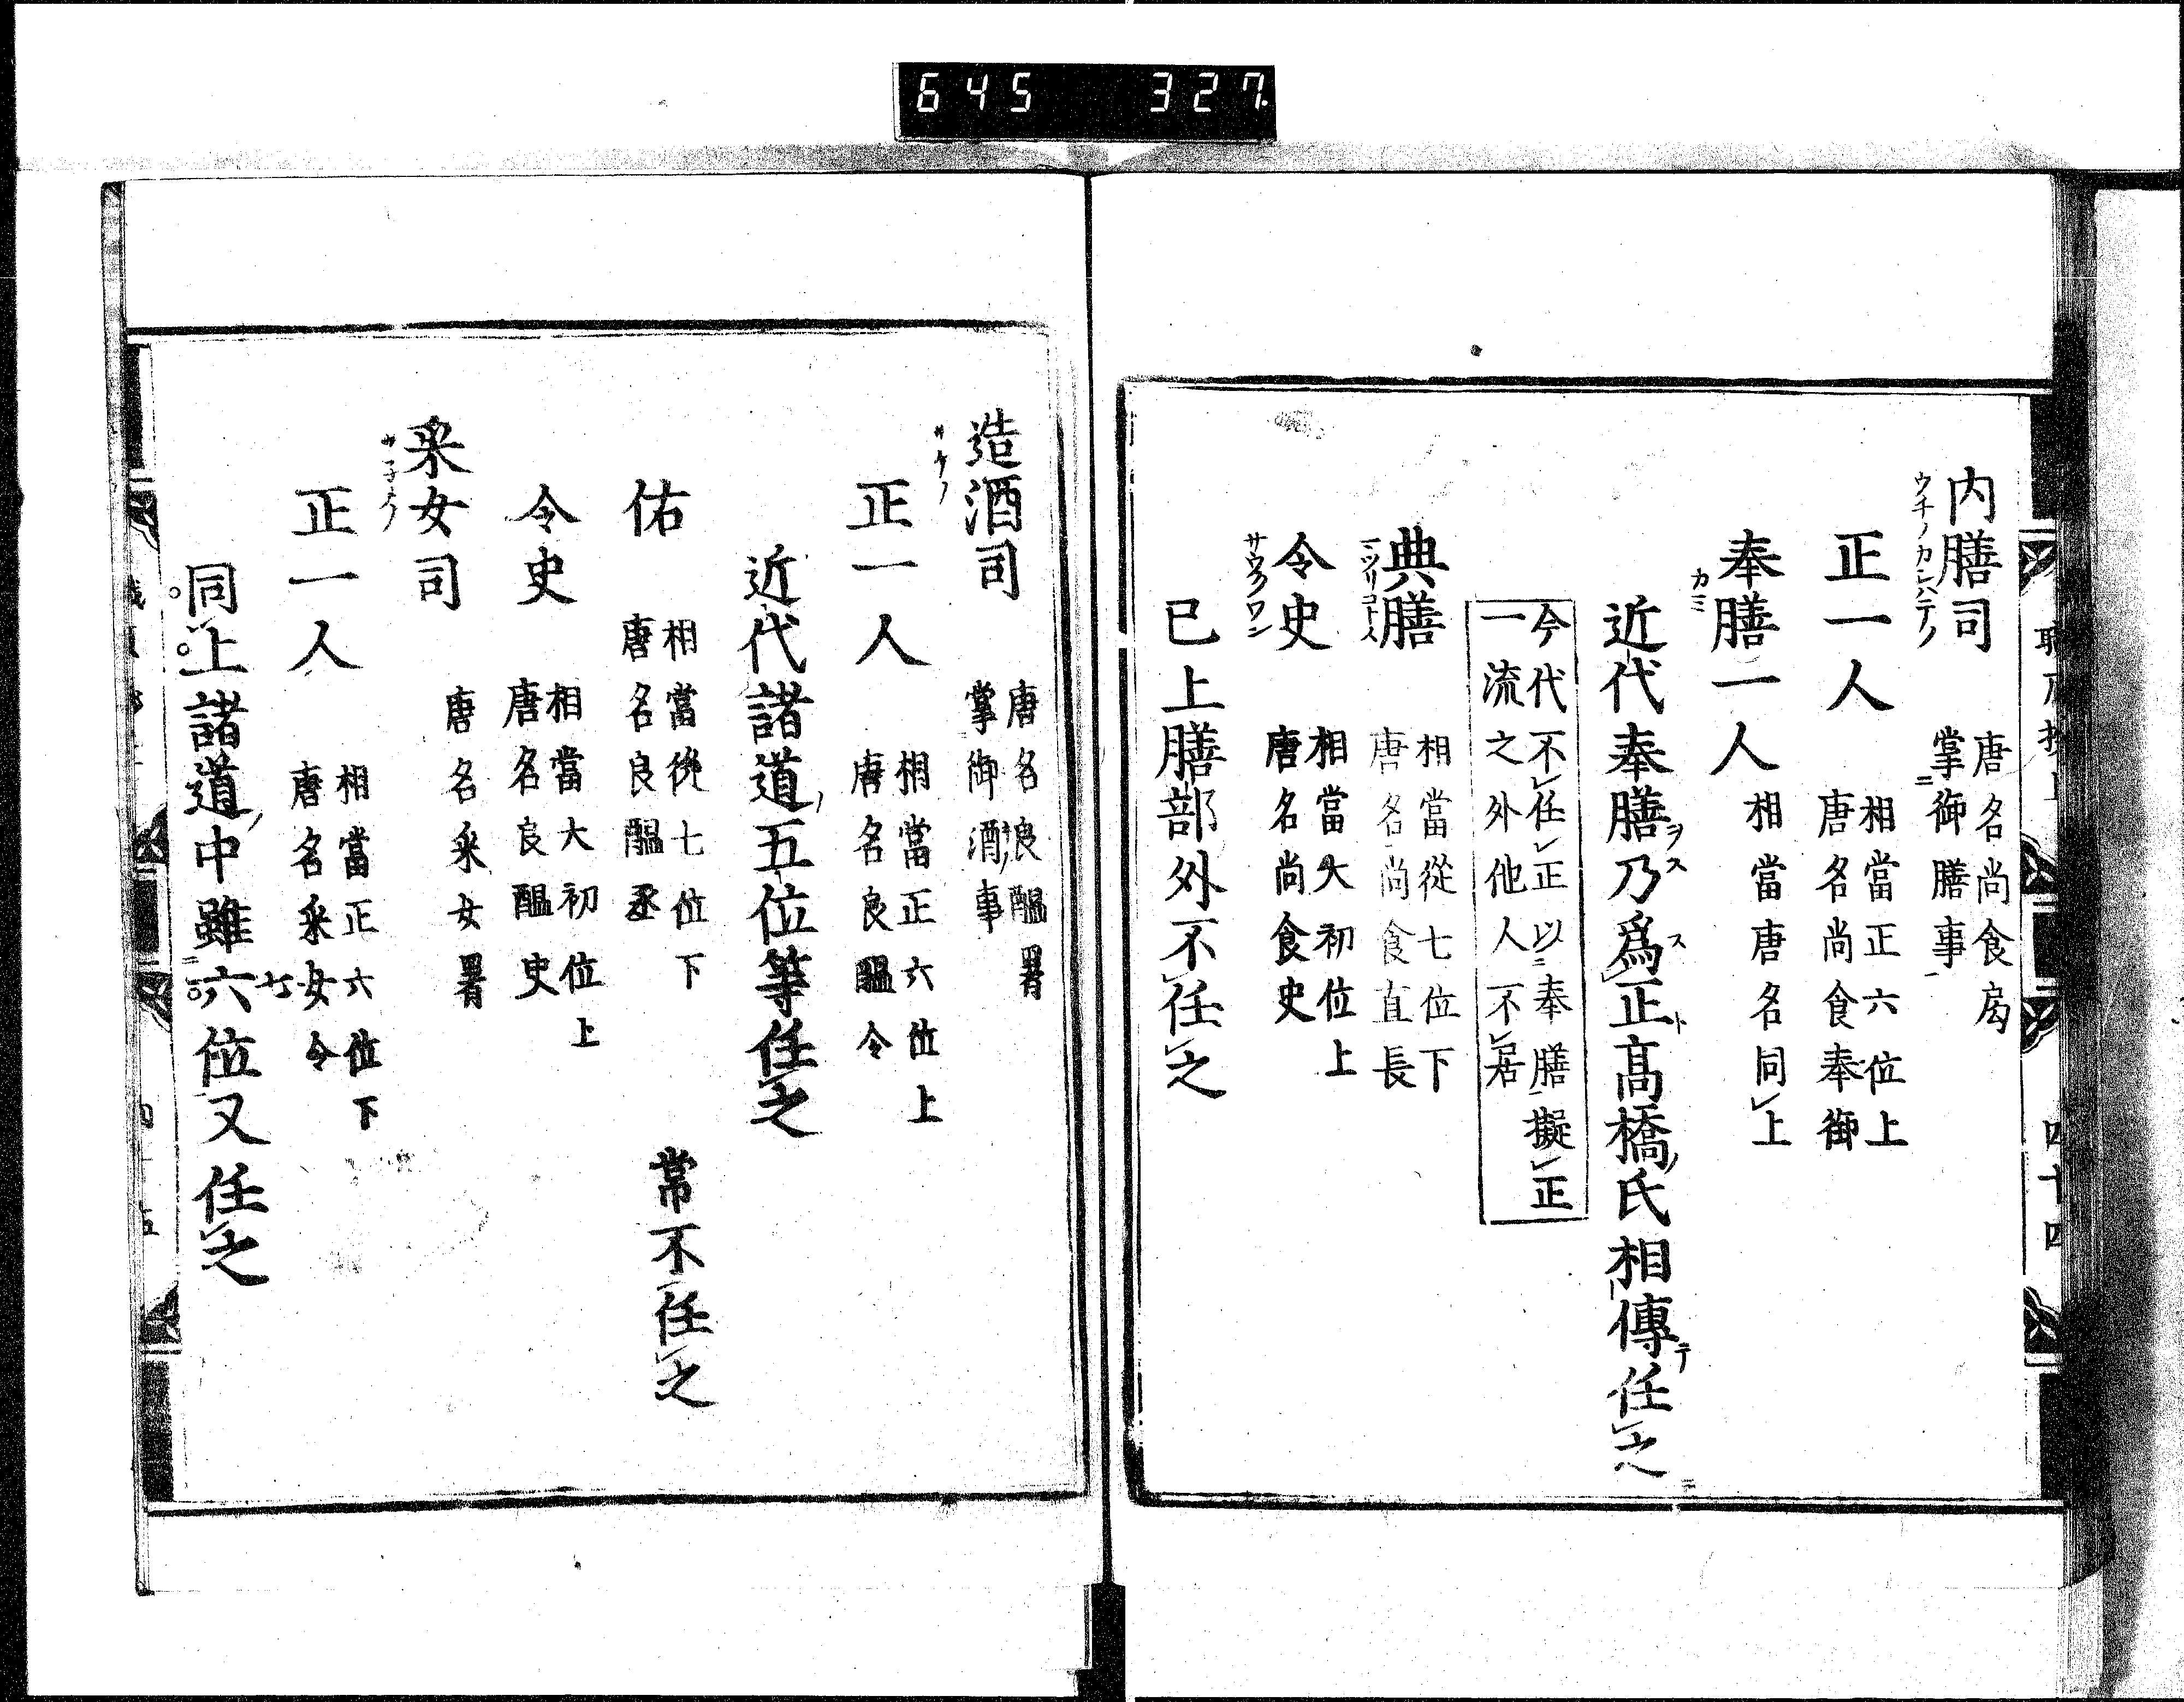 645 327
四十四
内膳司 唐名尚食局
掌御膳事
ウチノカシハテノ
正一人 相當正六位上
唐名尚食奉御
奉膳一人 相當唐名同上
カミ
近代奉膳乃爲正高橋氏相傳任之
今代不任正以奉膳擬正
一流之外他人不居
典膳 相當從七位下
唐名尚食直長
令史 相當大初位上
唐名尚食史
サウクワン
已上膳部外不任之
造酒司 唐名良醞署
掌御酒事
サケノ
正一人 相當正六位上
唐名良醞令
近代諸道五位等任之
佑 相當從七位下
唐名良醞丞
常不任之
令史 相當大初位上
唐名良醞史
采女司 唐名采女署
正一人 相當正六位下
唐名采女令
同上諸道中雖六位又任之